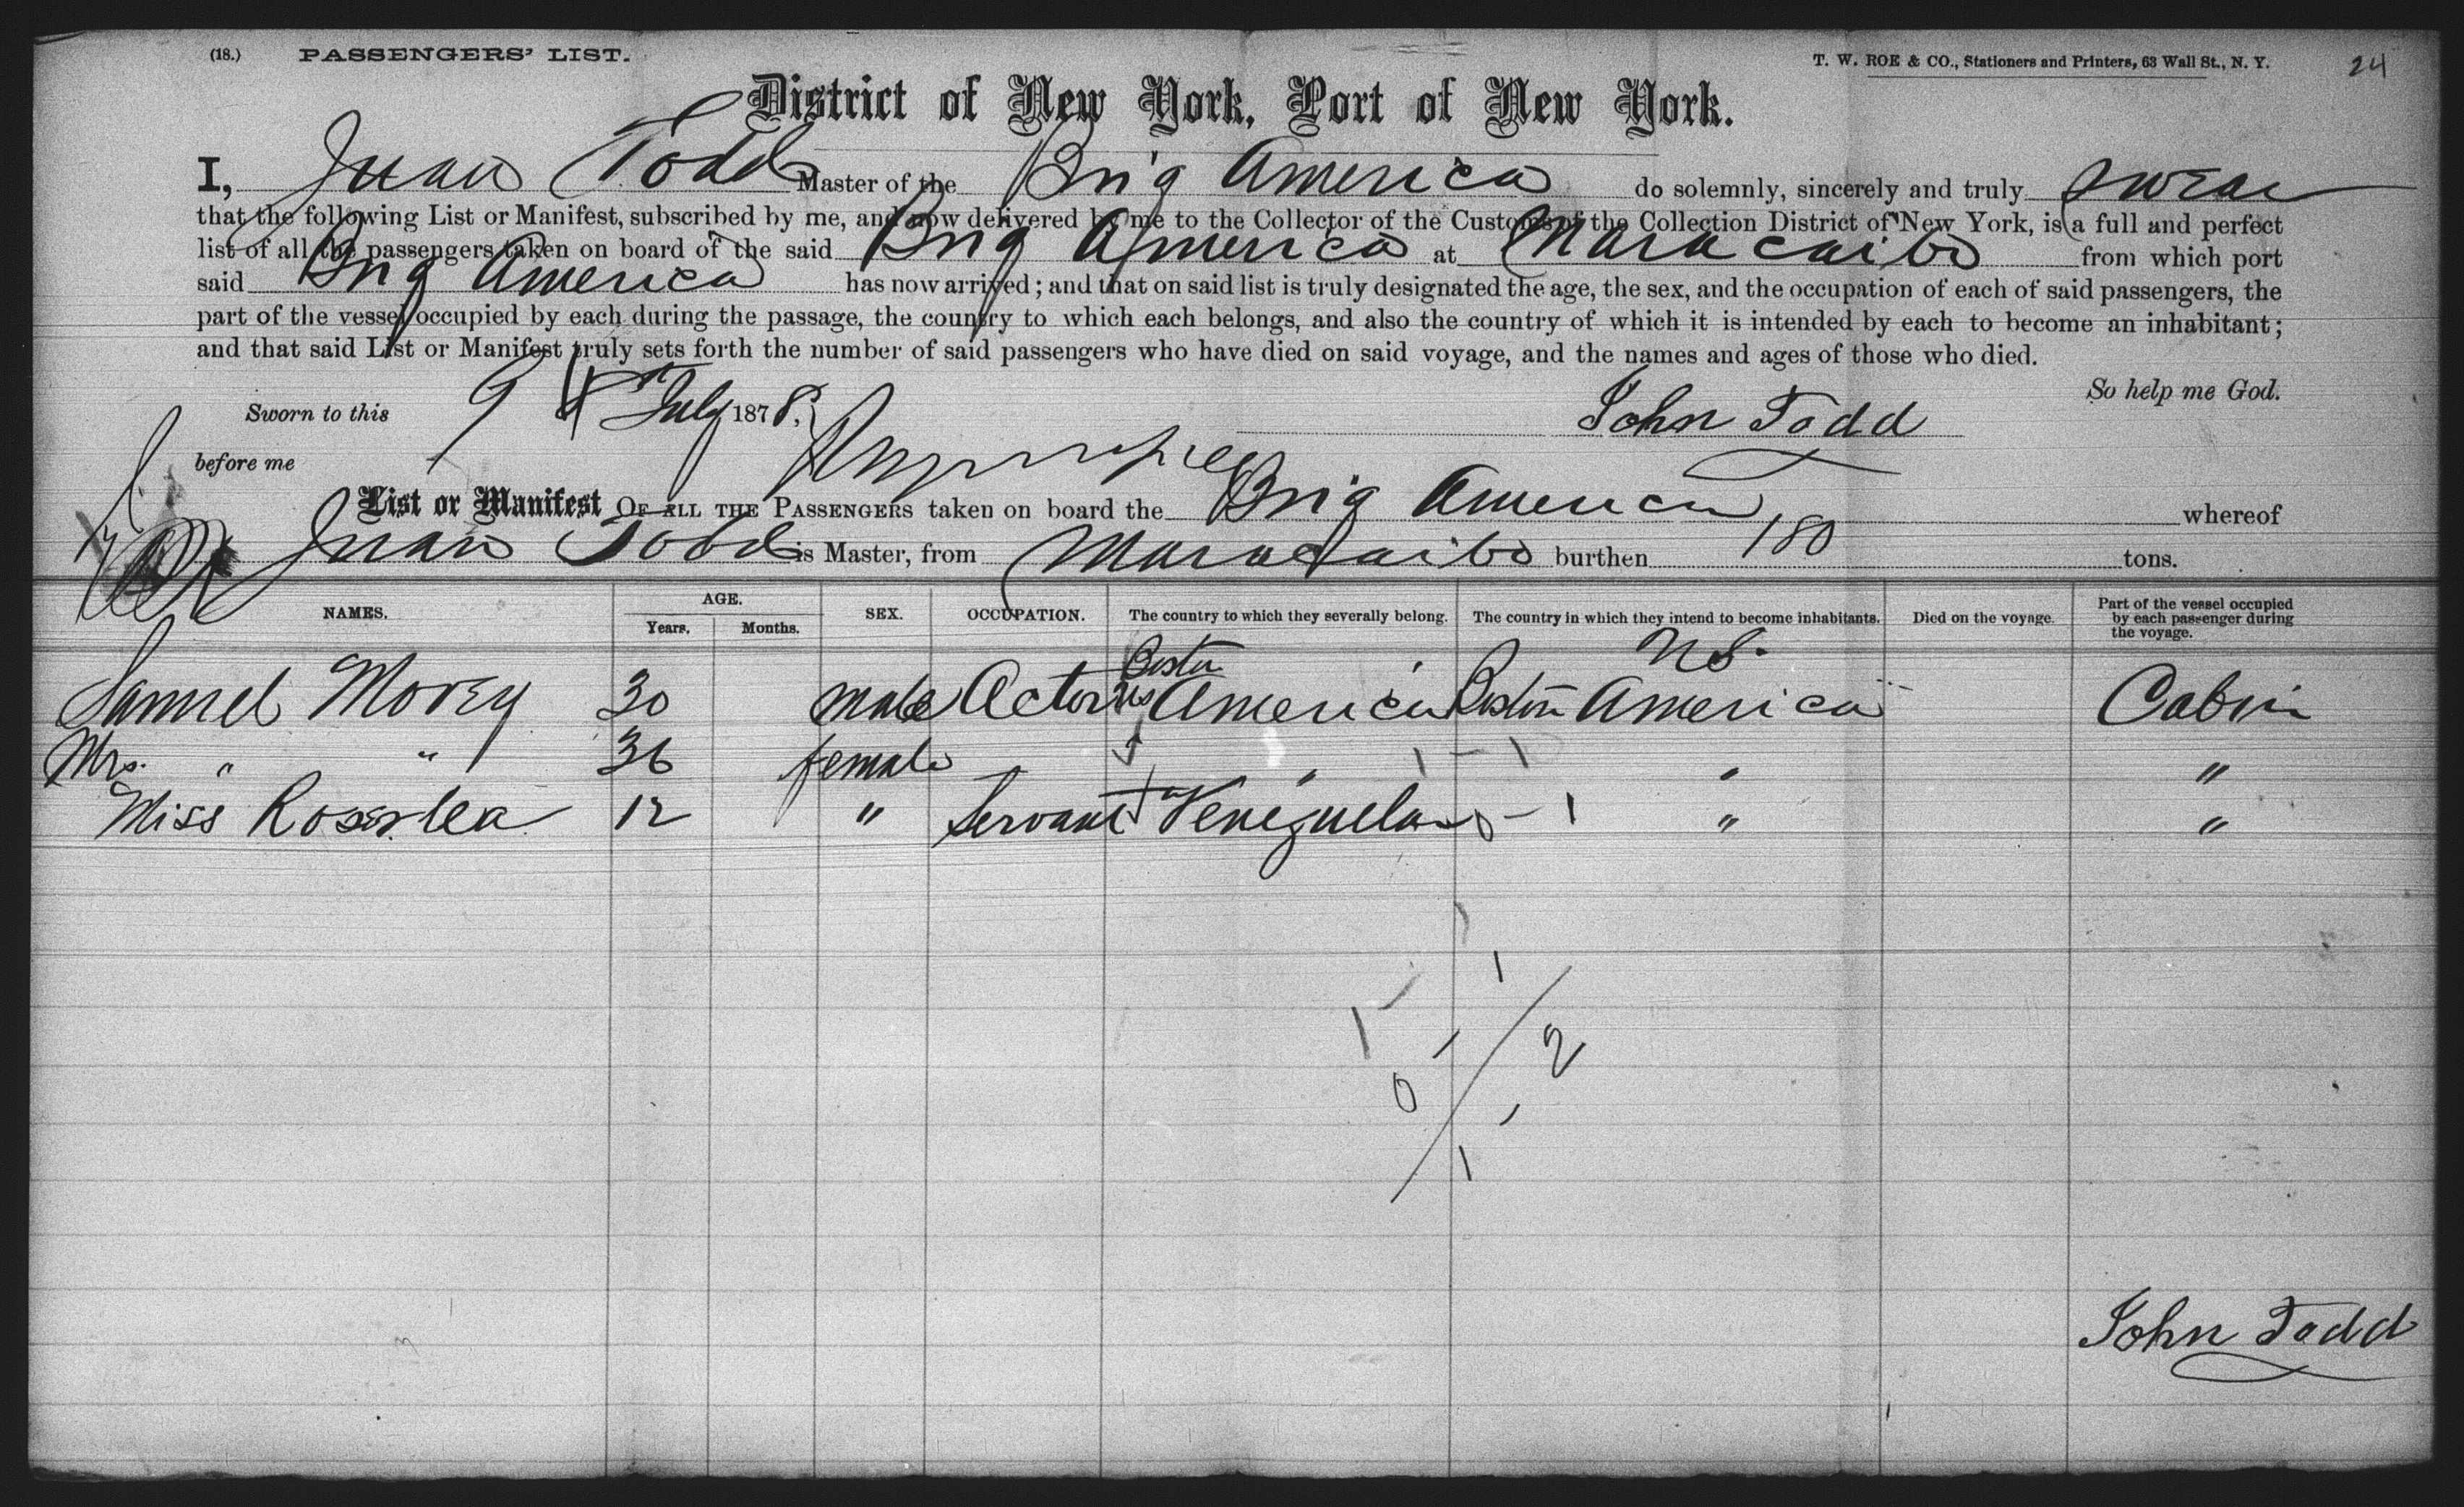 (18.) PASSENGERS' LIST. T. W. ROE & CO., Stationers and Printers, 63 Wall St., N. Y. 24
District of New York, Port of New York.
I, Juan Todd Master of the Brig America do solemnly, sincerely and truly swear
that the following List or Manifest, subscribed by me, and now delivered by me to the Collector of the Customs of the Collection District of New York, is a full and perfect
list of all the passengers taken on board of the said Brig America at Maracaibo from which port
said Brig America has now arrived; and that on said list is truly designated the age, the sex, and the occupation of each of said passengers, the
part of the vessel occupied by each during the passage, the country to which each belongs, and also the country of which it is intended by each to become an inhabitant;
and that said List or Manifest truly sets forth the number of said passengers who have died on said voyage, and the names and ages of those who died.
So help me God.
Sworn to this 9 July 1878. John Todd
before me
List or Manifest OF ALL THE PASSENGERS taken on board the Brig America whereof
Juan Todd is Master, from Maracaibo burthen 180 tons.
NAMES. AGE. Years. Months. SEX. OCCUPATION. The country to which they severally belong. The country in which they intend to become inhabitants. Died on the voyage. Part of the vessel occupied by each passenger during the voyage.
Samuel Morey 30 male Actor Boston US America Boston US. America Cabin
Mrs. " " 36 female " 1 - 1 " "
Miss 12 " Servant Venezuela 0 - 1 " "
1
1 2
0
1
John Todd